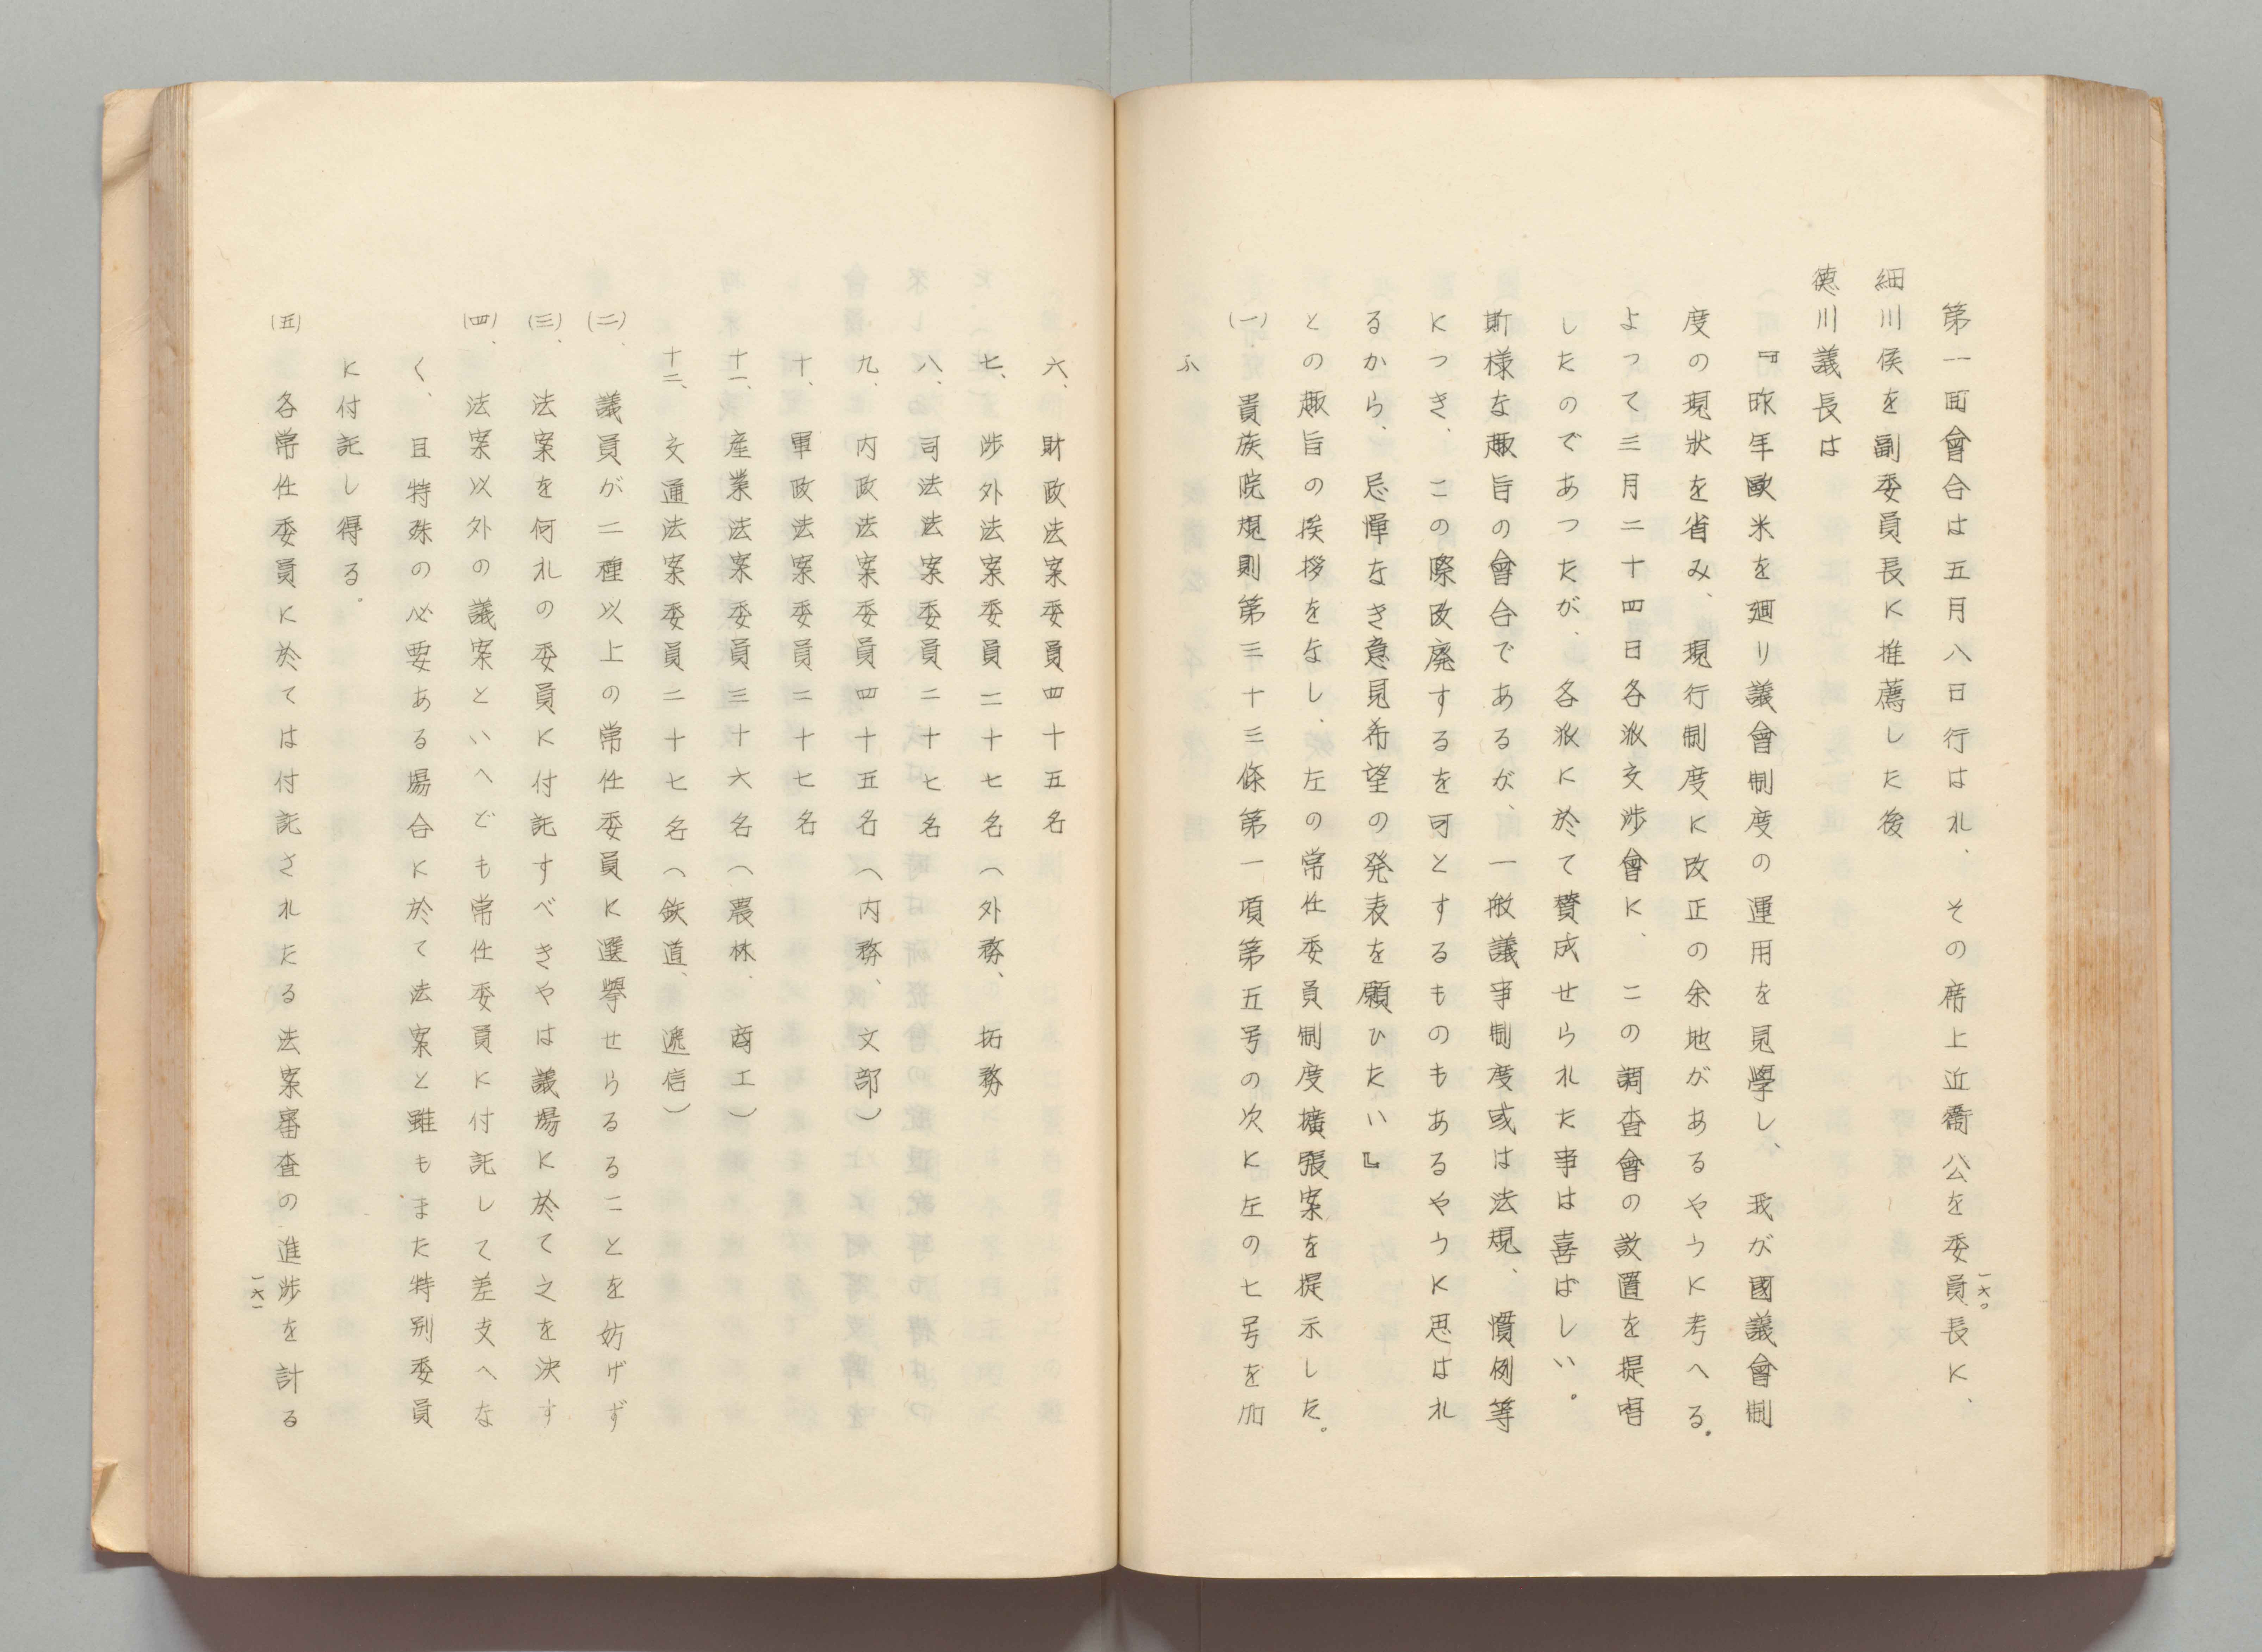 第一囬會合は五月八日行はれ、その席上近衞公を委員長に、
細川侯を副委員長に推薦した後
徳川議長は
『昨年歐米を廻り議會制度の運用を見學し、我が國議會制
度の現状を省み、現行制度に改正の余地があるやうに考へる。
よって三月二十四日各派交渉會に、この調査會の設置を提唱
したのであつたが、各派に於て賛成せられた事は喜ばしい。
斯様な趣旨の會合であるが、一般議事制度或は法規、慣例等
につき、この際改廃するを可とするものもあるやうに思はれ
るから、忌憚なき意見希望の発表を願ひたい』
との趣旨の挨拶をなし、左の常任委員制度擴張案を提示した。
(一)、貴族院規則第三十三條第一項第五号の次に左の七号を加
ふ
一六〇
六、財政法案委員四十五名
七、渉外法案委員二十七名(外務、拓務
八、司法法案委員二十七名
九、内政法案委員四十五名(内務、文部)
十、軍政法案委員二十七名
十一、産業法案委員三十六名(農林、商工)
十二、交通法案委員二十七名(鉄道、遞信)
(二)、議員が二種以上の常任委員に選擧せらるることを妨げず
(三)、法案を何れの委員に付託すべきやは議場に於て之を決す
(四)、法案以外の議案といへども常任委員に付託して差支へな
く、且特殊の必要ある場合に於て法案と雖もまた特別委員
に付託し得る。
(五)各常任委員に於ては付託されたる法案審査の進渉を計る
一六一